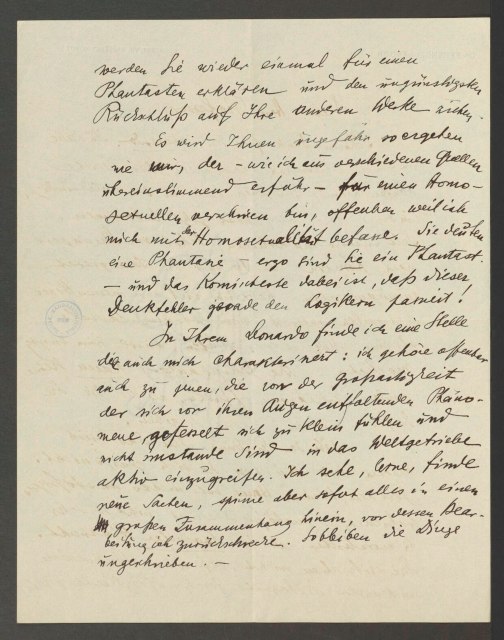 werden Sie wieder einmal für einen
Phantasten erklären und den ungünstigsten
Rückschluß auf Ihre anderen Werke ziehen.
Es wird Ihnen ungefähr so ergehen
wie mir, der – wie ich aus verschiedenen Quellen
übereinstimmend erfuhr – für einen Homo-
sexuellen verschrieen bin, offenbar weil ich
mich mit der Homosexualität befasse. Sie deuten
eine Phantasie – ergo sind Sie ein Phantast
– und das Komischeste dabei ist, daß dieser
Denkfehler gerade den Logikern passiert!
In Ihrem Leonardo finde ich eine Stelle
die auch mich charakterisiert: ich gehöre offenbar
auch zu jenen, die von der Großartigkeit
der sich vor ihren Augen entfaltenden Phäno-
mene gefesselt sich zu klein fühlen und
nicht imstande sind in das Weltgetriebe
aktiv einzugreifen. Ich sehe, lerne, finde
neue Sachen, spinne aber sofort alles in einen
großen Zusammenhang hinein, vor dessen Bear-
beitung ich zurückschrecke. So bleiben die Dinge
ungeschrieben. –